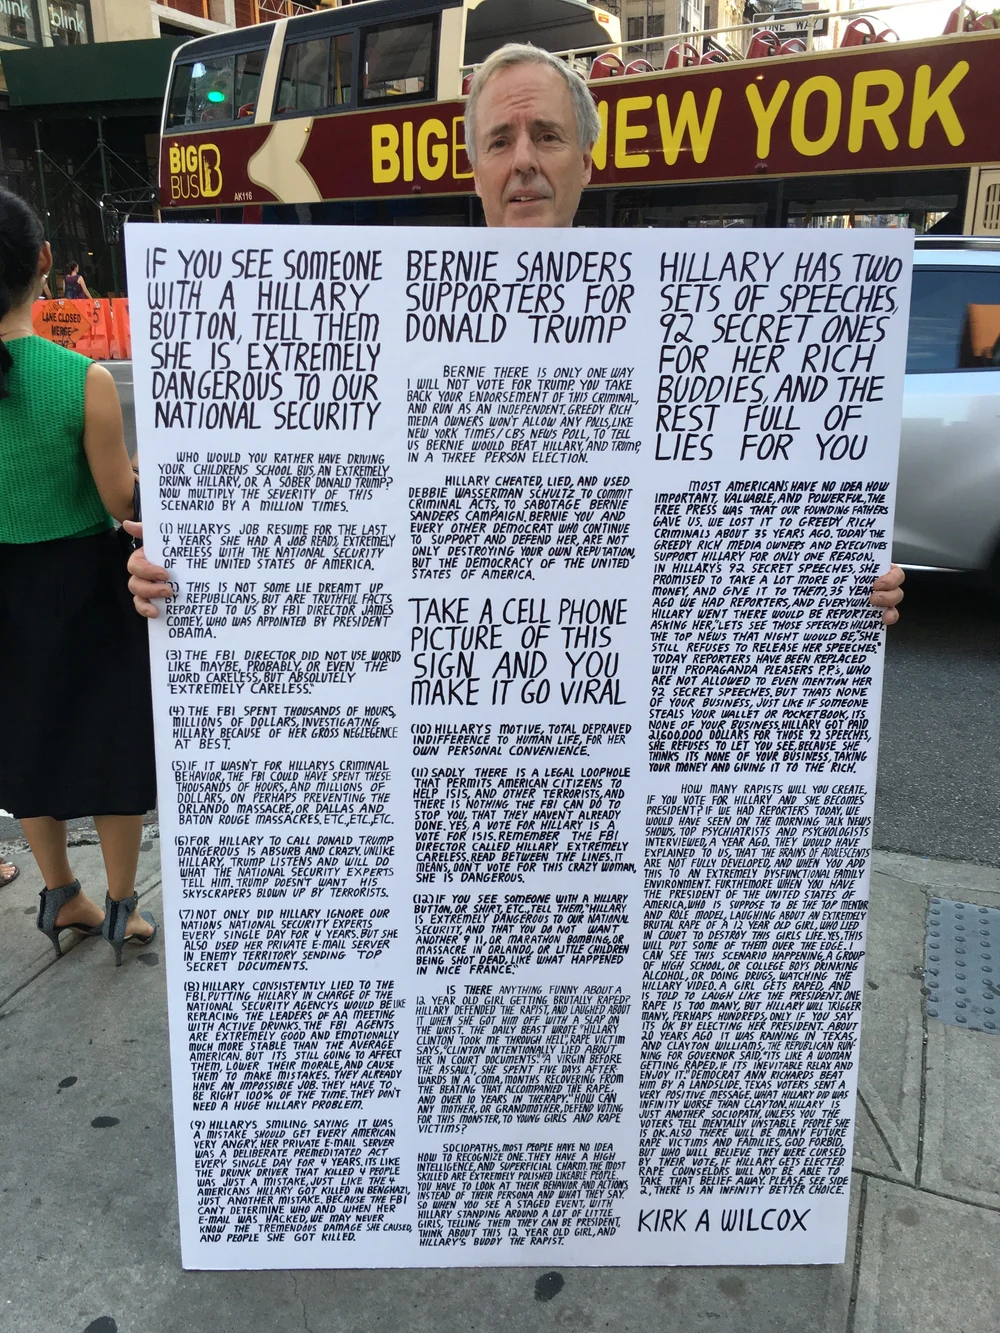 blink
blink
ONE WAY
BIG
BUS
AK116
BIG
NEW YORK
LANE CLOSED
MERGE
IF YOU SEE SOMEONE
WITH A HILLARY
BUTTON, TELL THEM
SHE IS EXTREMELY
DANGEROUS TO OUR
NATIONAL SECURITY
WHO WOULD YOU RATHER HAVE DRIVING
YOUR CHILDRENS SCHOOL BUS, AN EXTREMELY
DRUNK HILLARY, OR A SOBER DONALD TRUMP?
NOW MULTIPLY THE SEVERITY OF THIS
SCENARIO BY A MILLION TIMES.
(1) HILLARY'S JOB RESUME FOR THE LAST
4 YEARS SHE HAD A JOB READS, EXTREMELY
CARELESS WITH THE NATIONAL SECURITY
OF THE UNITED STATES OF AMERICA.
THIS IS NOT SOME LIE DREAMT UP
BY REPUBLICANS, BUT ARE TRUTHFUL FACTS
REPORTED TO US BY FBI DIRECTOR JAMES
COMEY, WHO WAS APPOINTED BY PRESIDENT
OBAMA.
(3) THE FBI DIRECTOR DID NOT USE WORDS
LIKE MAYBE, PROBABLY, OR EVEN THE
WORD CARELESS, BUT ABSOLUTELY
"EXTREMELY CARELESS."
(4) THE FBI SPENT THOUSANDS OF HOURS,
MILLIONS OF DOLLARS, INVESTIGATING
HILLARY BECAUSE OF HER GROSS NEGLEGENCE
AT BEST.
(5) IF IT WASN'T FOR HILLARYS CRIMINAL
BEHAVIOR, THE FBI COULD HAVE SPENT THESE
THOUSANDS OF HOURS, AND MILLIONS OF
DOLLARS, ON PERHAPS PREVENTING THE
ORLANDO MASSACRE, OR DALLAS AND
BATON ROUGE MASSACRES, ETC., ETC., ETC.
(6) FOR HILLARY TO CALL DONALD TRUMP
DANGEROUS IS ABSURD AND CRAZY, UNLIKE
HILLARY, TRUMP LISTENS AND WILL DO
WHAT THE NATIONAL SECURITY EXPERTS
TELL HIM. TRUMP DOESN'T WANT HIS
SKYSCRAPERS BLOWN UP BY TERRORISTS.
(7) NOT ONLY DID HILLARY IGNORE OUR
NATIONS NATIONAL SECURITY EXPERTS
EVERY SINGLE DAY FOR 4 YEARS, BUT SHE
ALSO USED HER PRIVATE E-MAIL SERVER
IN ENEMY TERRITORY SENDING TOP
SECRET DOCUMENTS.
(8) HILLARY CONSISTENTLY LIED TO THE
FBI. PUTTING HILLARY IN CHARGE OF THE
NATIONAL SECURITY AGENCYS WOULD BE LIKE
REPLACING THE LEADERS OF AA MEETING
WITH ACTIVE DRUNKS. THE FBI AGENTS
ARE EXTREMELY GOOD AND EMOTIONALLY
MUCH MORE STABLE THAN THE AVERAGE
AMERICAN. BUT ITS STILL GOING TO AFFECT
THEM, LOWER THEIR MORALE, AND CAUSE
THEM TO MAKE MISTAKES. THEY ALREADY
HAVE AN IMPOSSIBLE JOB. THEY HAVE TO
BE RIGHT 100% OF THE TIME. THEY DON'T
NEED A HUGE HILLARY PROBLEM.
(9) HILLARYS SMILING SAYING IT WAS
A MISTAKE SHOULD GET EVERY AMERICAN
VERY ANGRY. HER PRIVATE E-MAIL SERVER
WAS A DELIBERATE PREMEDITATED ACT
EVERY SINGLE DAY FOR 4 YEARS. ITS LIKE
THE DRUNK DRIVER THAT KILLED 4 PEOPLE
WAS JUST A MISTAKE, JUST LIKE THE 4
AMERICANS HILLARY GOT KILLED IN BENGHAZI,
JUST ANOTHER MISTAKE. BECAUSE THE FBI
CAN'T DETERMINE WHO AND WHEN HER
E-MAIL WAS HACKED, WE MAY NEVER
KNOW THE TREMENDOUS DAMAGE SHE CAUSED,
AND PEOPLE SHE GOT KILLED.
BERNIE SANDERS
SUPPORTERS FOR
DONALD TRUMP
BERNIE THERE IS ONLY ONE WAY
I WILL NOT VOTE FOR TRUMP. YOU TAKE
BACK YOUR ENDORSEMENT OF THIS CRIMINAL,
AND RUN AS AN INDEPENDENT, GREEDY RICH
MEDIA OWNERS WON'T ALLOW ANY POLLS, LIKE
NEW YORK TIMES/CBS NEWS POLL, TO TELL
US BERNIE WOULD BEAT HILLARY, AND TRUMP,
IN A THREE PERSON ELECTION.
HILLARY CHEATED, LIED, AND USED
DEBBIE WASSERMAN SCHULTZ TO COMMIT
CRIMINAL ACTS, TO SABOTAGE BERNIE
SANDERS CAMPAIGN. BERNIE YOU AND
EVERY OTHER DEMOCRAT WHO CONTINUE
TO SUPPORT AND DEFEND HER, ARE NOT
ONLY DESTROYING YOUR OWN REPUTATION,
BUT THE DEMOCRACY OF THE UNITED
STATES OF AMERICA.
TAKE A CELL PHONE
PICTURE OF THIS
SIGN AND YOU
MAKE IT GO VIRAL
(10) HILLARY'S MOTIVE, TOTAL DEPRAVED
INDIFFERENCE TO HUMAN LIFE, FOR HER
OWN PERSONAL CONVENIENCE.
(11) SADLY THERE IS A LEGAL LOOPHOLE
THAT PERMITS AMERICAN CITIZENS TO
HELP ISIS, AND OTHER TERRORISTS, AND
THERE IS NOTHING THE FBI CAN DO TO
STOP YOU, THAT THEY HAVEN'T ALREADY
DONE. YES, A VOTE FOR HILLARY IS A
VOTE FOR ISIS. REMEMBER THE FBI
DIRECTOR CALLED HILLARY EXTREMELY
CARELESS. READ BETWEEN THE LINES. IT
MEANS, DON'T VOTE FOR THIS CRAZY WOMAN,
SHE IS DANGEROUS.
(12) IF YOU SEE SOMEONE WITH A HILLARY
BUTTON, OR SHIRT, ETC., TELL THEM, "HILLARY
IS EXTREMELY DANGEROUS TO OUR NATIONAL
SECURITY, AND THAT YOU DO NOT WANT
ANOTHER 9 11, OR MARATHON BOMBING, OR
MASSACRE IN ORLANDO, OR LITTLE CHILDREN
BEING SHOT DEAD, LIKE WHAT HAPPENED
IN NICE FRANCE."
IS THERE ANYTHING FUNNY ABOUT A
12 YEAR OLD GIRL GETTING BRUTALLY RAPED?
HILLARY DEFENDED THE RAPIST, AND LAUGHED ABOUT
IT WHEN SHE GOT HIM OFF WITH A SLAP ON
THE WRIST. THE DAILY BEAST WROTE "HILLARY
CLINTON TOOK ME THROUGH HELL", RAPE VICTIM
SAYS, "CLINTON INTENTIONALLY LIED ABOUT
HER IN COURT DOCUMENTS." A VIRGIN BEFORE
THE ASSAULT, SHE SPENT FIVE DAYS AFTER-
WARDS IN A COMA, MONTHS RECOVERING FROM
THE BEATING THAT ACCOMPANIED THE RAPE,
AND OVER 10 YEARS IN THERAPY." HOW CAN
ANY MOTHER, OR GRANDMOTHER, DEFEND VOTING
FOR THIS MONSTER, TO YOUNG GIRLS AND RAPE
VICTIMS?
SOCIOPATHS, MOST PEOPLE HAVE NO IDEA
HOW TO RECOGNIZE ONE. THEY HAVE A HIGH
INTELLIGENCE, AND SUPERFICIAL CHARM. THE MOST
SKILLED ARE EXTREMELY POLISHED LIKEABLE PEOPLE.
YOU HAVE TO LOOK AT THEIR BEHAVIOR AND ACTIONS
INSTEAD OF THEIR PERSONA AND WHAT THEY SAY.
SO WHEN YOU SEE A STAGED EVENT, WITH
HILLARY STANDING AROUND A LOT OF LITTLE
GIRLS, TELLING THEM THEY CAN BE PRESIDENT,
THINK ABOUT THIS 12 YEAR OLD GIRL, AND
HILLARY'S BUDDY THE RAPIST.
HILLARY HAS TWO
SETS OF SPEECHES,
92 SECRET ONES
FOR HER RICH
BUDDIES, AND THE
REST FULL OF
LIES FOR YOU
MOST AMERICANS HAVE NO IDEA HOW
IMPORTANT, VALUABLE, AND POWERFUL, THE
FREE PRESS WAS THAT OUR FOUNDING FATHERS
GAVE US. WE LOST IT TO GREEDY RICH
CRIMINALS ABOUT 35 YEARS AGO. TODAY THE
GREEDY RICH MEDIA OWNERS AND EXECUTIVES
SUPPORT HILLARY FOR ONLY ONE REASON,
IN HILLARY'S 92 SECRET SPEECHES, SHE
PROMISED TO TAKE A LOT MORE OF YOUR
MONEY, AND GIVE IT TO THEM. 35 YEAR
AGO WE HAD REPORTERS, AND EVERYWHERE
HILLARY WENT THERE WOULD BE REPORTERS
ASKING HER, "LETS SEE THOSE SPEECHES HILLARY."
THE TOP NEWS THAT NIGHT WOULD BE, "SHE
STILL REFUSES TO RELEASE HER SPEECHES."
TODAY REPORTERS HAVE BEEN REPLACED
WITH PROPAGANDA PLEASERS P.P.'s, WHO
ARE NOT ALLOWED TO EVEN MENTION HER
92 SECRET SPEECHES. BUT THATS NONE
OF YOUR BUSINESS, JUST LIKE IF SOMEONE
STEALS YOUR WALLET OR POCKETBOOK, ITS
NONE OF YOUR BUSINESS, HILLARY GOT PAID
21,600,000 DOLLARS FOR THOSE 92 SPEECHES,
SHE REFUSES TO LET YOU SEE, BECAUSE SHE
THINKS ITS NONE OF YOUR BUSINESS, TAKING
YOUR MONEY AND GIVING IT TO THE RICH.
HOW MANY RAPISTS WILL YOU CREATE,
IF YOU VOTE FOR HILLARY AND SHE BECOMES
PRESIDENT? IF WE HAD REPORTERS TODAY, WE
WOULD HAVE SEEN ON THE MORNING TALK NEWS
SHOWS, TOP PSYCHIATRISTS AND PSYCHOLOGISTS
INTERVIEWED, A YEAR AGO. THEY WOULD HAVE
EXPLAINED TO US, THAT THE BRAINS OF ADOLESCENTS
ARE NOT FULLY DEVELOPED, AND WHEN YOU ADD
THIS TO AN EXTREMELY DYSFUNCTIONAL FAMILY
ENVIRONMENT. FURTHEMORE WHEN YOU HAVE
THE PRESIDENT OF THE UNITED STATES OF
AMERICA, WHO IS SUPPOSE TO BE THE TOP MENTOR
AND ROLE MODEL, LAUGHING ABOUT AN EXTREMELY
BRUTAL RAPE OF A 12 YEAR OLD GIRL, WHO LIED
IN COURT TO DESTROY THIS GIRLS LIFE. YES, THIS
WILL PUT SOME OF THEM OVER THE EDGE. I
CAN SEE THIS SCENARIO HAPPENING, A GROUP
OF HIGH SCHOOL, OR COLLEGE BOYS DRINKING
ALCOHOL, OR DOING DRUGS, WATCHING THE
HILLARY VIDEO. A GIRL GETS RAPED, AND
IS TOLD TO LAUGH LIKE THE PRESIDENT. ONE
RAPE IS TOO MANY, BUT HILLARY WILL TRIGGER
MANY, PERHAPS HUNDREDS, ONLY IF YOU SAY
ITS OK BY ELECTING HER PRESIDENT. ABOUT
20 YEARS AGO IT WAS RAINING IN TEXAS,
AND CLAYTON WILLIAMS, THE REPUBLICAN RUN-
NING FOR GOVERNOR SAID, "ITS LIKE A WOMAN
GETTING RAPED, IF ITS INEVITABLE RELAX AND
ENJOY IT." DEMOCRAT ANN RICHARDS BEAT
HIM BY A LANDSLIDE. TEXAS VOTERS SENT A
VERY POSITIVE MESSAGE. WHAT HILLARY DID WAS
INFINITY WORSE THAN CLAYTON. HILLARY IS
JUST ANOTHER SOCIOPATH, UNLESS YOU THE
VOTERS TELL MENTALLY UNSTABLE PEOPLE SHE
IS OK. ALSO THERE WILL BE MANY FUTURE
RAPE VICTIMS AND FAMILIES, GOD FORBID,
BUT WHO WILL BELIEVE THEY WERE CURSED
BY THEIR VOTE, IF HILLARY GETS ELECTED
RAPE COUNSELORS WILL NOT BE ABLE TO
TAKE THAT BELIEF AWAY. PLEASE SEE SIDE
2, THERE IS AN INFINITY BETTER CHOICE.
KIRK A WILCOX